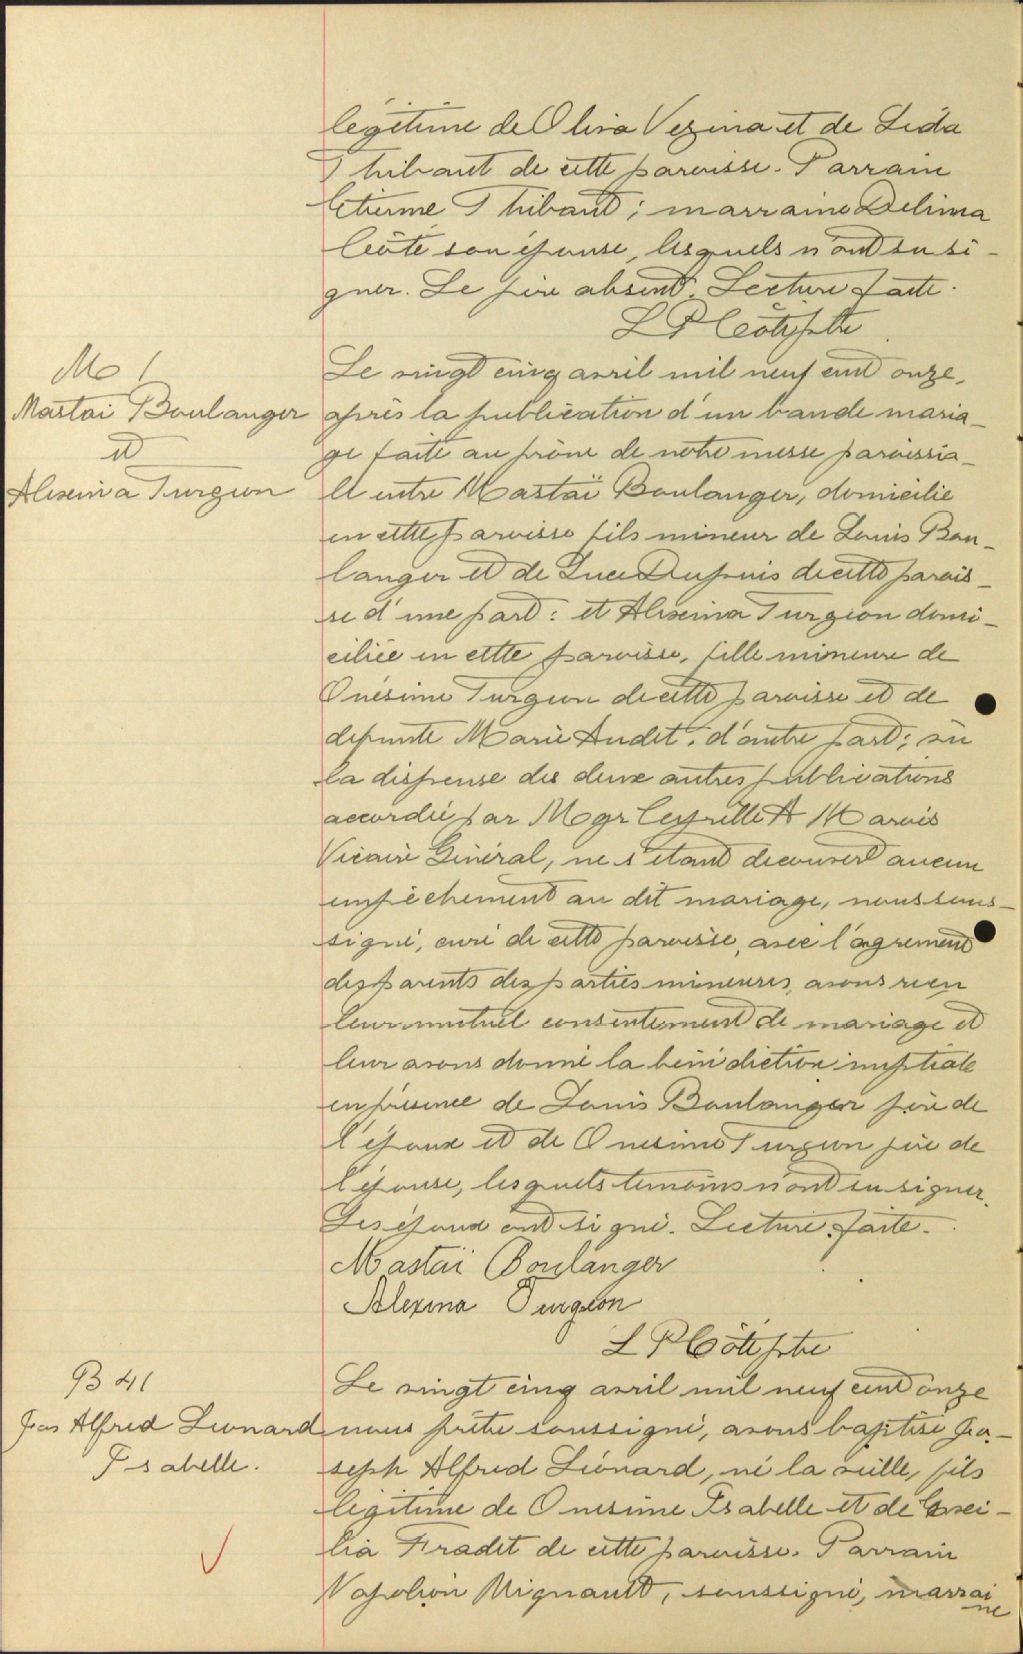 légitime de Oliva Vezina et de Léda
Thibaut de cette paroisse. Parrain
Etienne Thibaut; marraine Delima
Côté son épouse, lesquels n'ont su si-
gner. Le père absent. Lecture faite.
L P Côté ptre
M 1
Mastai Boulanger
et
Alexina Turgeon
Le vingt cinq avril mil neuf cent onze,
après la publication d'un ban de maria-
ge faite au prône de notre messe paroissia-
le entre Mastaï Boulanger, domicilié
en cette paroisse fils mineur de Louis Bou-
langer et de Luce Dupuis de cette parois-
se d'une part: et Alexina Turgeon domi-
ciliée en cette paroisse, fille mineure de
Onésime Turgeon de cette paroisse et de
defunte Marie Audet, d'autre part; vu
la dispense des deux autres publications
accordée par Mgr Cyrille A Marois
Vicaire Général, ne s'étant decouvert aucun
empêchement au dit mariage, nous sous-
signé, curé de cette paroisse, avec l'agrement
des parents des parties mineures, avons reçu
leur mutuel consentement de mariage et
leur avons donné la bénédiction nuptiale
en présence de Louis Boulanger père de
l'époux et de Onesime Turgeon père de
l'épouse, lesquels temoins n'ont su signer.
Les époux ont signé. Lecture faite.
Mastaï Boulanger
Alexina Turgeon
L P Côté ptre
B 41
Jos Alfred Leonard
Isabelle.
Le vingt cinq avril mil neuf cent onze
nous prêtre soussigné, avons baptisé Jo-
seph Alfred Léonard, né la veille, fils
légitime de Onesime Isabelle et de Exei-
lia Fradet de cette paroisse. Parrain
Napoléon Mignault, soussigné, marrai
ne